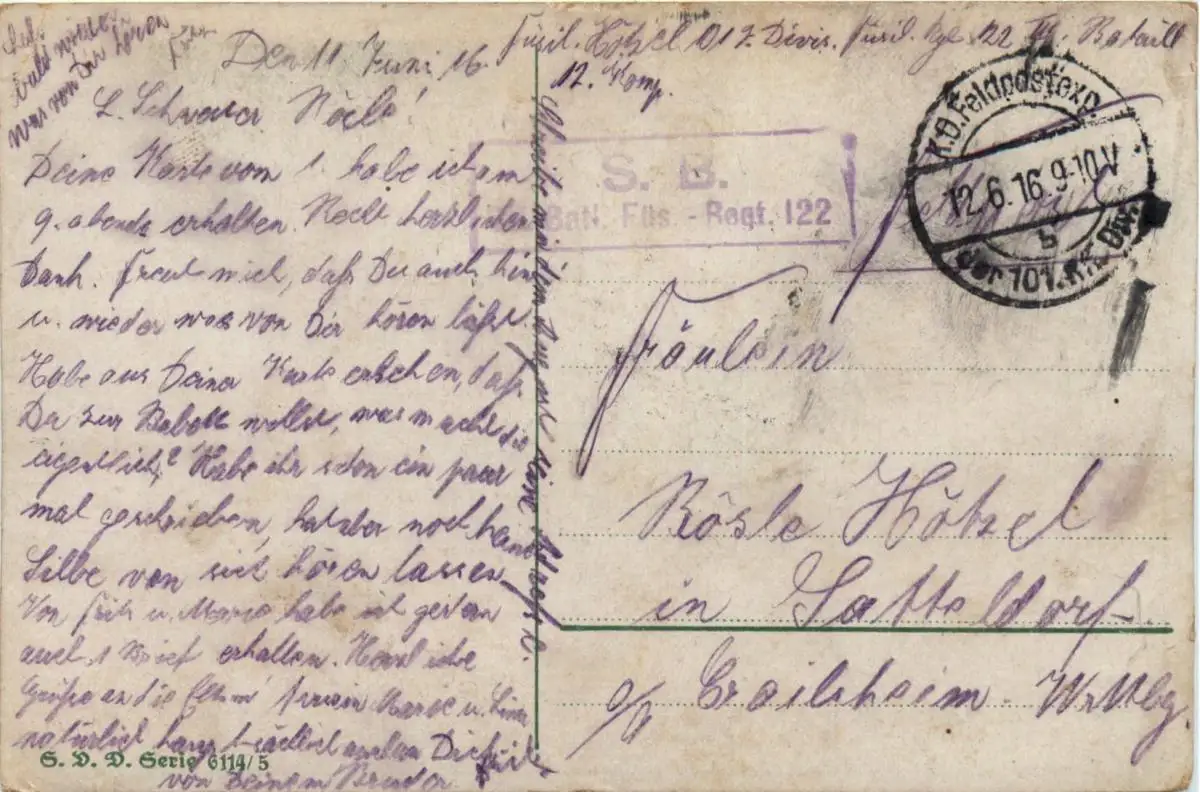 Fusil. Hötzel 101 J. Divis. Füsil. Rgt. 122 III. Bataill
12. Komp.
K.D. Feldpostexp.
12.6.16. 9-10 V
b
der 101. Inf. Div.
S. B.
Batl. Füs. - Regt. 122
bald wieder
was von Dir hören
Den 11. Juni 16.
L. Schwester Rösle!
Deine Karte vom 1. habe ich am
9. abends erhalten. Recht herzlichen
Dank. Freut mich, daß Du auch hin
u. wieder was von Dir hören läßt.
Habe aus Deiner Karte ersehen, daß
Du zur Babett willst, was macht die
eigentlich? Habe ihr schon ein paar
mal geschrieben, hat aber noch keine
Silbe von sich hören lassen
Von Fritz u. Marie habe ich gestern
auch 1 Brief erhalten. Herzliche
Grüße an die Eltern Marie u.
natürlich hauptsächlich
von Deinem Bruder
Fräulein
Rösle Hötzel
in Satteldorf
o/ Crailsheim Wrttbg.
S. D. D. Serie 6114/5